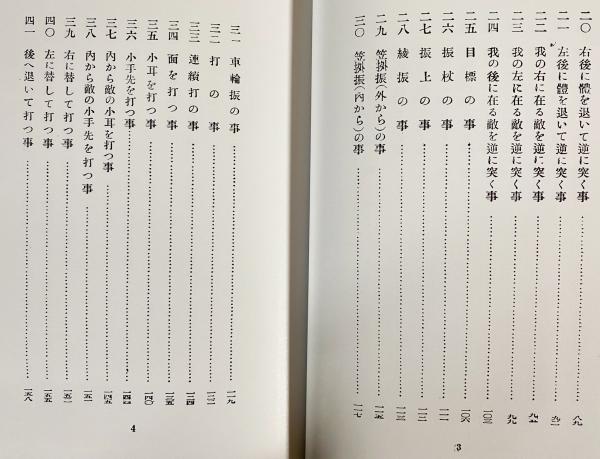 二〇 右後に體を退いて逆に突く事……八九
二一 左後に體を退いて逆に突く事……
二二 我の右に在る敵を逆に突く事……
二三 我の左に在る敵を逆に突く事……
二四 我の後に在る敵を逆に突く事……一〇三
二五 目標の事……一〇六
二六 振杖の事……
二七 振上の事……
二八 綾振の事……
二九 笠掛振(外から)の事……
三〇 笠掛振(内から)の事……
3
三一 車輪振の事……一二九
三二 打の事……
三三 連續打の事……一三四
三四 面を打つ事……一三五
三五 小耳を打つ事……一四〇
三六 小手先を打つ事……
三七 内から敵の小耳を打つ事……一四五
三八 内から敵の小手先を打つ事……
三九 右に替して打つ事……
四〇 左に替して打つ事……一五五
四一 後へ退いて打つ事……一五八
4